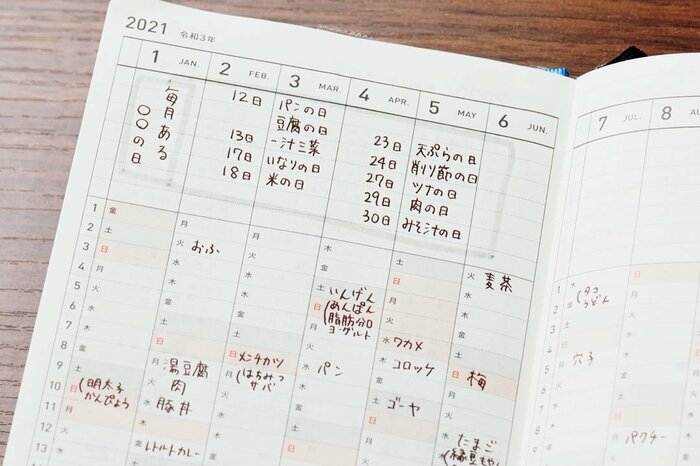 2021 令和3年
1 JAN. 2 FEB. 3 MAR. 4 APR. 5 MAY 6 JUN.
7 JUL. 8 AU
毎月ある
〇〇の日
12日 パンの日
豆腐の日
13日 一汁三菜
17日 いなりの日
18日 米の日
23日 天ぷらの日
24日 削り節の日
27日 ツナの日
29日 肉の日
30日 みそ汁の日
1 金 月 月 木 土 火
2 土 火 おふ 火 金 日 水 麦茶
3 日 水 水 土 月 木
4 月 木 木 日 いんげん 火 金
(あんぱん
(脂肪分0
ヨーグルト
5 火 金 金 月 水 ワカメ 土
6 水 土 土 火 木 コロッケ 日 梅
7 木 日 日 水 金 月
8 金 月 月 木 土 火
9 土 火 火 金 日 水
10 日 水 水 土 月 木
11 月 木 木 日 火 金
12 火 金 金 月 水 土
13 水 土 土 火 木 日
(明太子
かんぴょう
湯豆腐
肉
豚丼
レトルトカレー
メンチカツ
(はちみつ
サバ
パン
ゴーヤ
たまご
(緑豆もやし
1 木
2 金 (タコ
うどん
3 土
4 日
5 月 穴子
6 火
7 水
8 木
9 金 パクチー